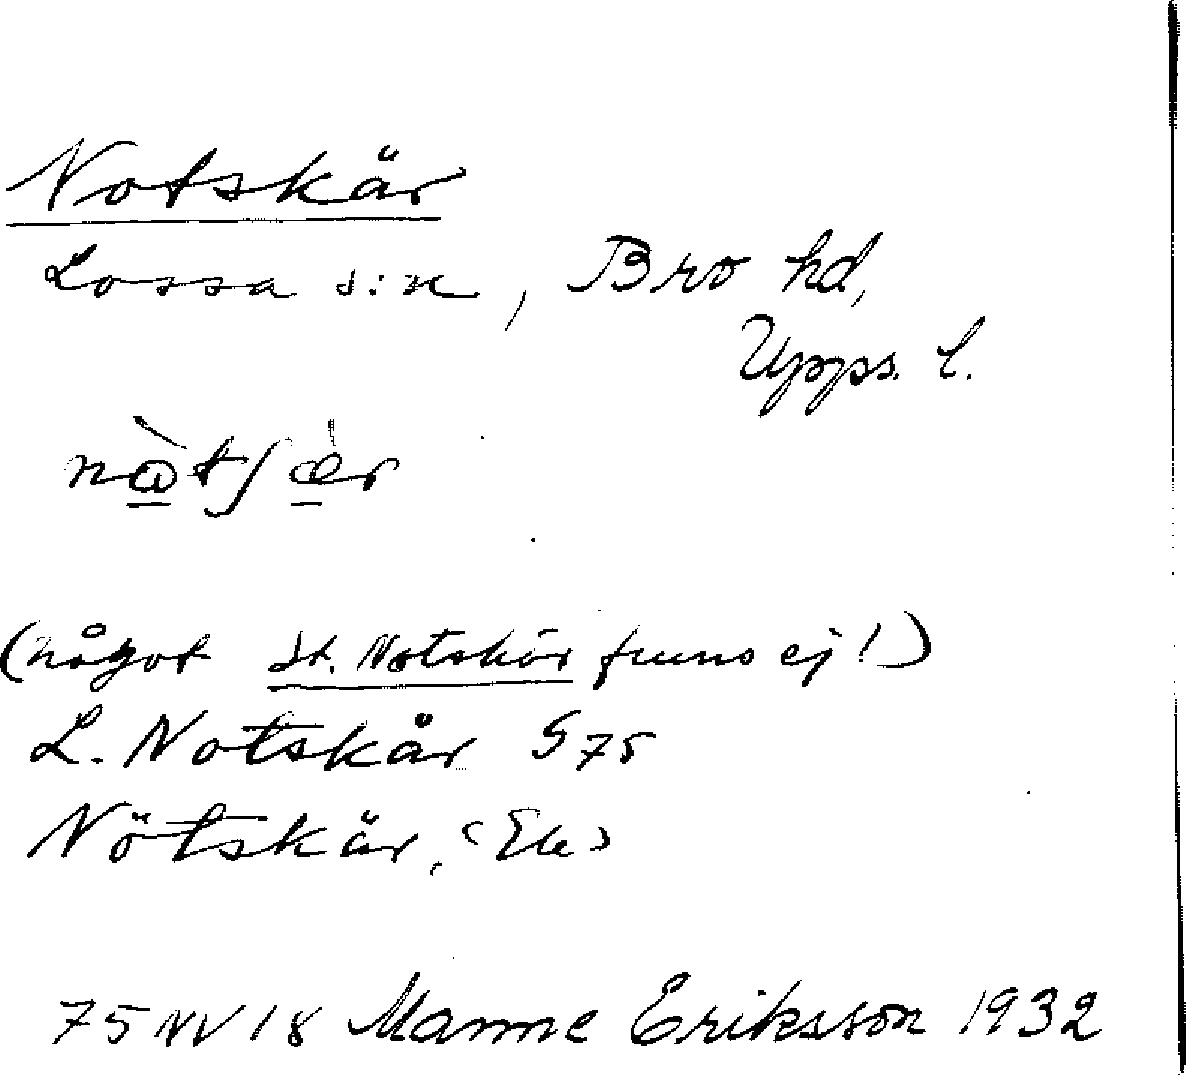 Notskär
Lossa s:n, Bro hd,
Upps. l.
(något St. Notskär finns ej!)
L. Notskär S 75
Nötskär, (Ek)
75 NV 18 Manne Eriksson 1932